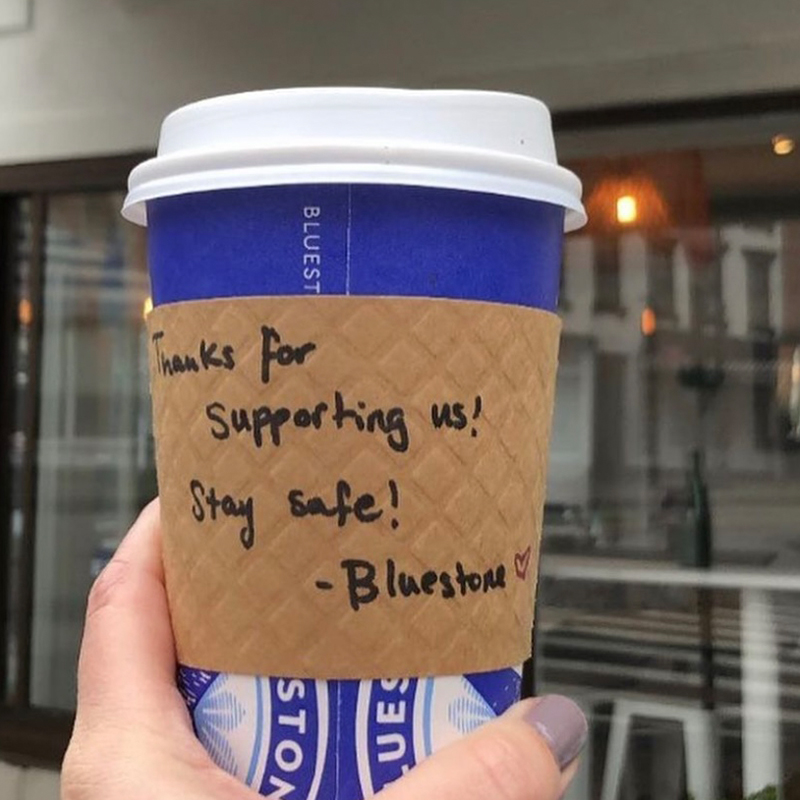 BLUEST
Thanks for
supporting us!
Stay safe!
-Bluestone
STON
LUES